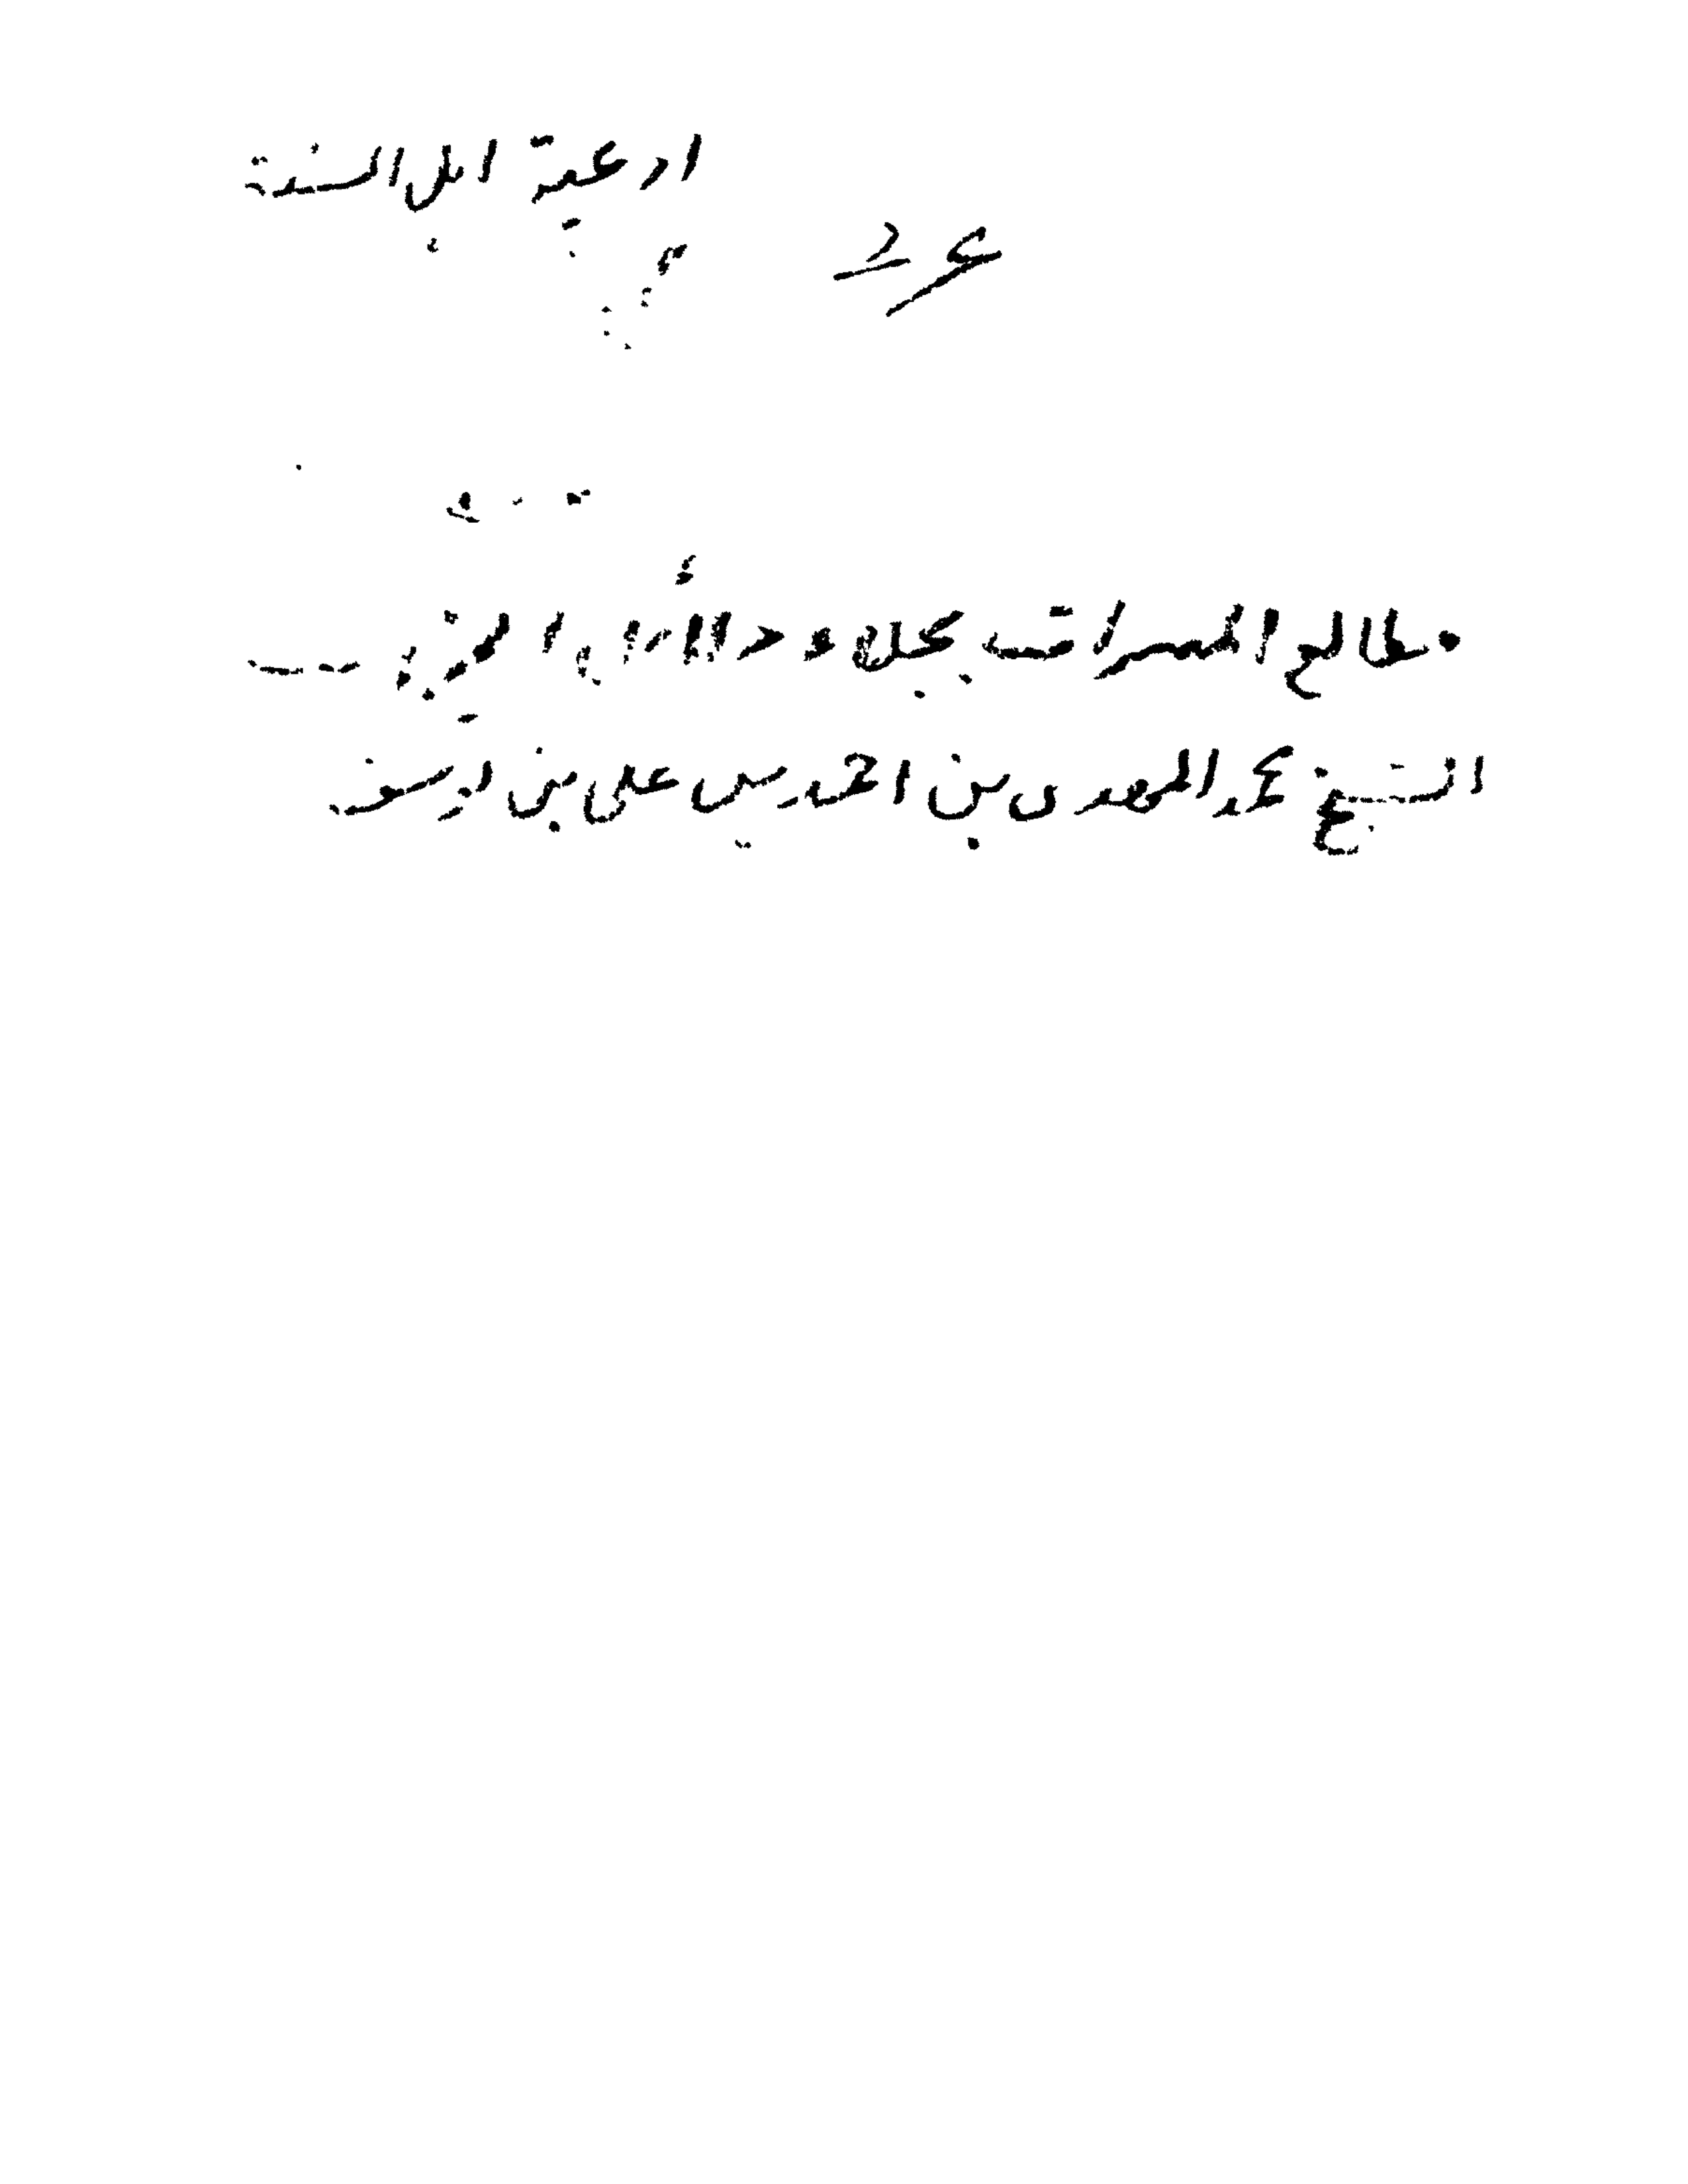 ادعية اهل السنة
عرد
مطالع المسرات بجلاء دلائل الخيرات
الشيخ محمد المهدى بن احمد بن على بن يوسف